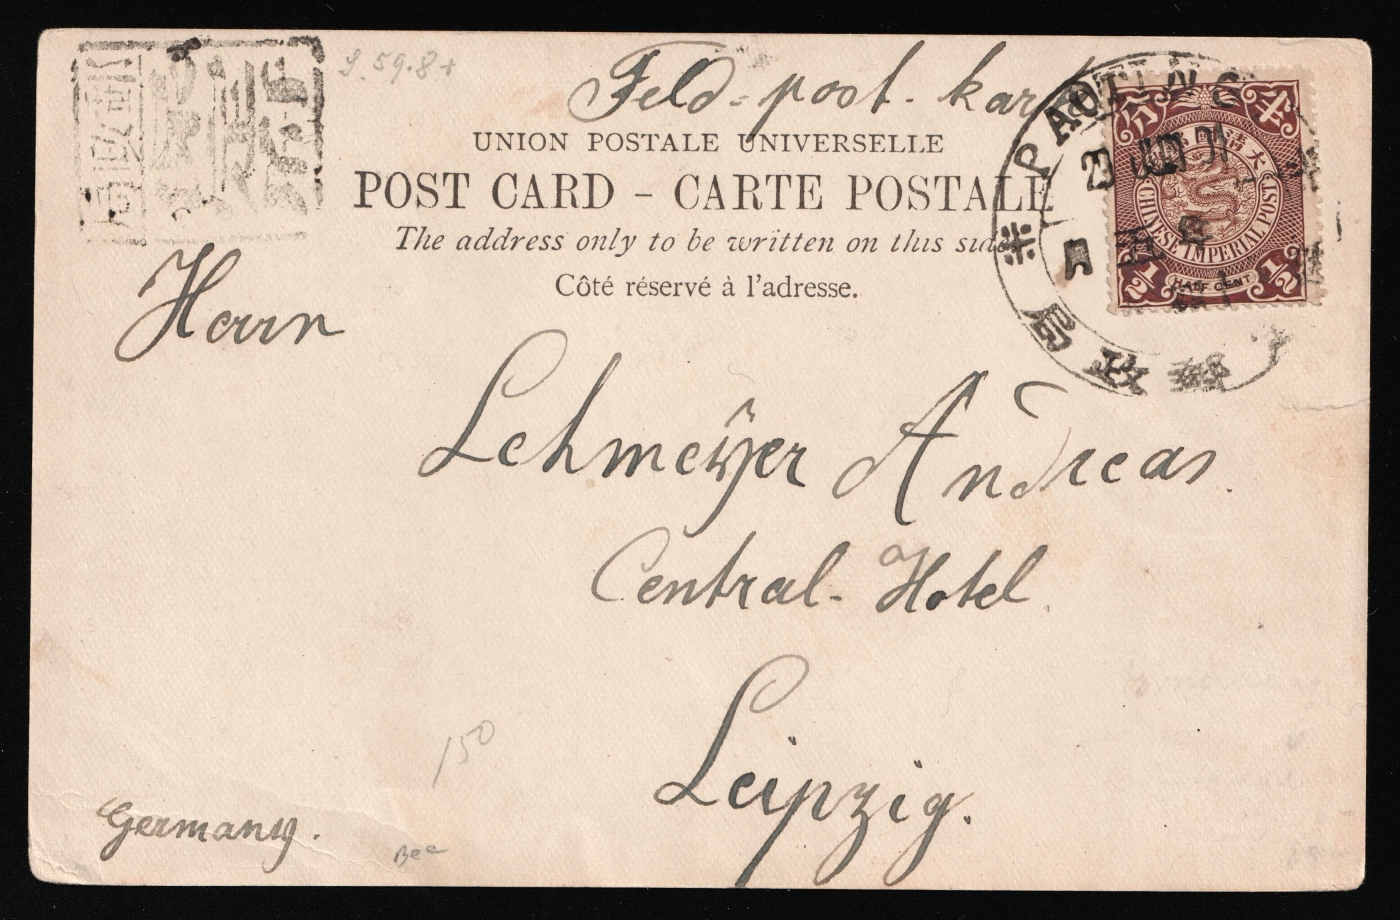 S.59.8+
Feld-post-kar
UNION POSTALE UNIVERSELLE
POST CARD – CARTE POSTALE
The address only to be written on this side
Côté réservé à l'adresse.
PAOTING
大清國
CHINESE IMPERIAL POST
1/2 HALF CENT 1/2
Herrn
Lehmeÿer Andreas.
Central-Hotel.
Leipzig.
150
Germany.
Bee